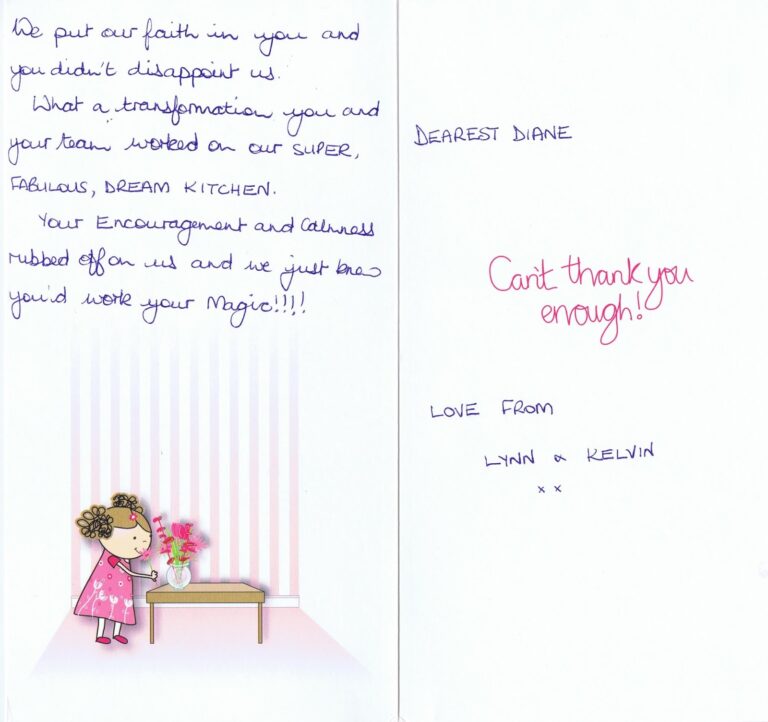 We put our faith in you and
you didn't disappoint us.
What a transformation you and
your team worked on our SUPER,
FABULOUS, DREAM KITCHEN.
Your Encouragement and Calmness
rubbed off on us and we just knew
you'd work your Magic!!!!
DEAREST DIANE
Can't thank you
enough!
LOVE FROM
LYNN & KELVIN
x x